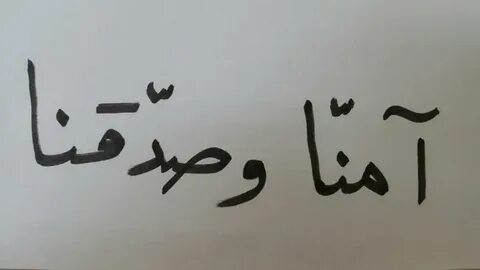 آمنّا وصدّقنا